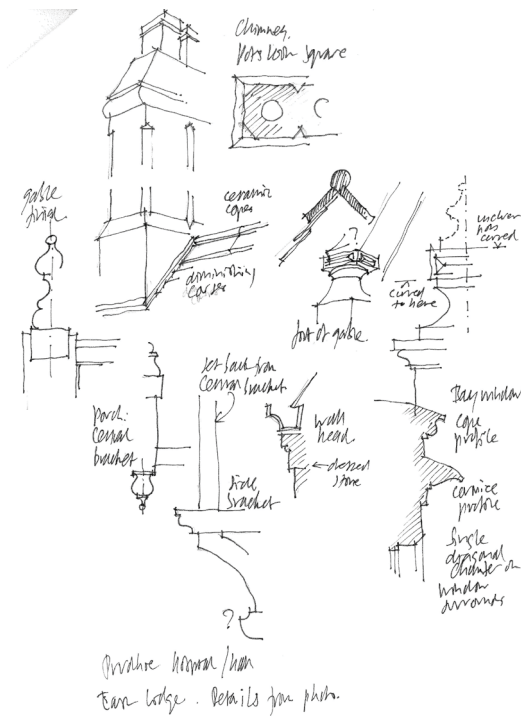 Chimney.
Pots look square
gable
finial
ceramic
copes
diminishing
courses
?
foot of gable.
curved
to here
has
curved
Porch:
Central
bracket
set back from
Central bracket
Side
bracket
wall
head.
dressed
stone
Bay window
cope
profile
cornice
profile
Single
diagonal
chamfer on
window
surrounds
?
Prudhoe Hospital / Hall
East Lodge. Details from photo.